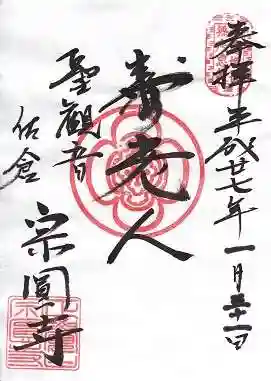 奉拝 平成廿七年一月三十一日
寿老人
聖観音
佐倉 宗圓寺